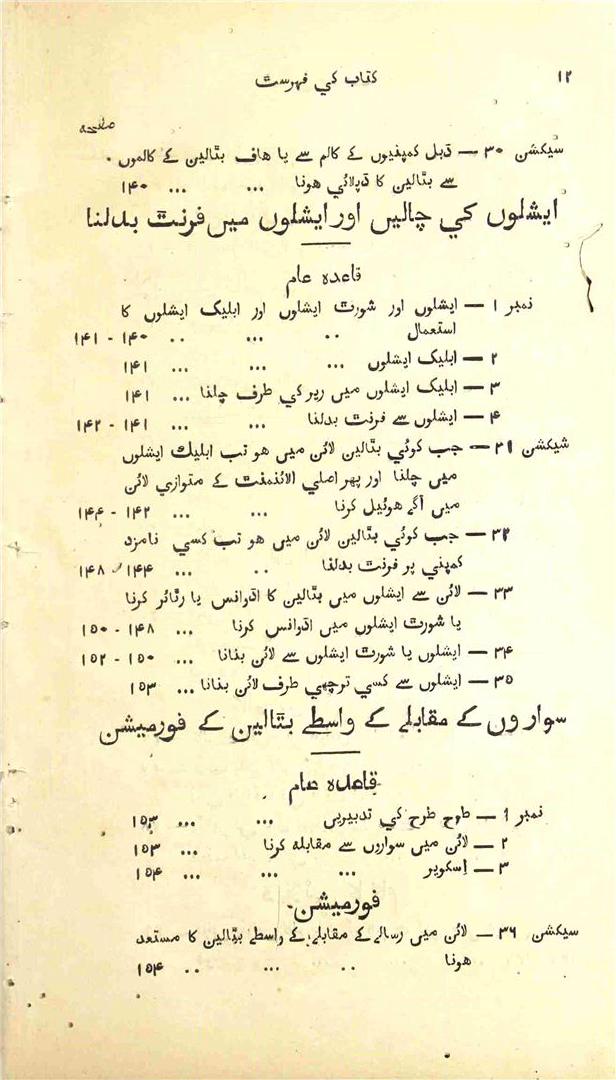 ۱۲ کتاب کي فہرست
صفحہ
سیکشن ۳۰ — ڈبل کمپنیوں کے کالم سے یا ھاف بٹالین کے کالموں
سے بٹالین کا ڈپلائي ھونا ... ... ۱۴۰
ایشلوں کي چالیں اور ایشلوں میں فرنٹ بدلنا
قاعدہ عام
نمبر ۱ — ایشلوں اور شورٹ ایشلوں اور ابلیک ایشلوں کا
استعمال .. ... .. ۱۴۰ - ۱۴۱
۲ — ابلیک ایشلوں ... ... ... ۱۴۱
۳ — ابلیک ایشلوں میں ریر کي طرف چلنا ... ۱۴۱
۴ — ایشلوں سے فرنٹ بدلنا ... ... ۱۴۱ - ۱۴۲
شیکشن ۳۱ — جب کوئي بٹالین لائن میں ھو تب ابلیک ایشلوں
میں چلنا اور پھر اصلي الائنمنٹ کے متوازي لائن
میں آگے ھوئیل کرنا ... ... ۱۴۲ - ۱۴۴
۳۲ — جب کوئي بٹالین لائن میں ھو تب کسي نامزد
کمپني پر فرنٹ بدلنا .. ... ۱۴۴ - ۱۴۸
۳۳ — لائن سے ایشلوں میں بٹالین کا اڈوانس یا رٹائر کرنا
یا شورٹ ایشلوں میں اڈوانس کرنا ... ۱۴۸ - ۱۵۰
۳۴ — ایشلوں یا شورٹ ایشلوں سے لائن بنانا ... ۱۵۰ - ۱۵۲
۳۵ — ایشلوں سے کسي ترچھي طرف لائن بنانا ... ۱۵۳
سواروں کے مقابلے کے واسطے بٹالین کے فورمیشن
قاعدہ عام
نمبر ۱ — طرح طرح کي تدبیریں ... ... ۱۵۳
۲ — لائن میں سواروں سے مقابلہ کرنا ... ۱۵۳
۳ — اِسکویر ... ... ... ۱۵۴
فورمیشن
سیکشن ۳۶ — لائن میں رسالے کے مقابلے کے واسطے بٹالین کا مستعد
ھونا .. ... .. ۱۵۴